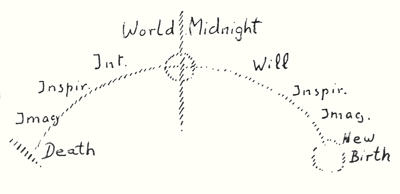 World Midnight
Int.
Will
Inspir.
Inspir.
Imag
Imag.
Death
New
Birth